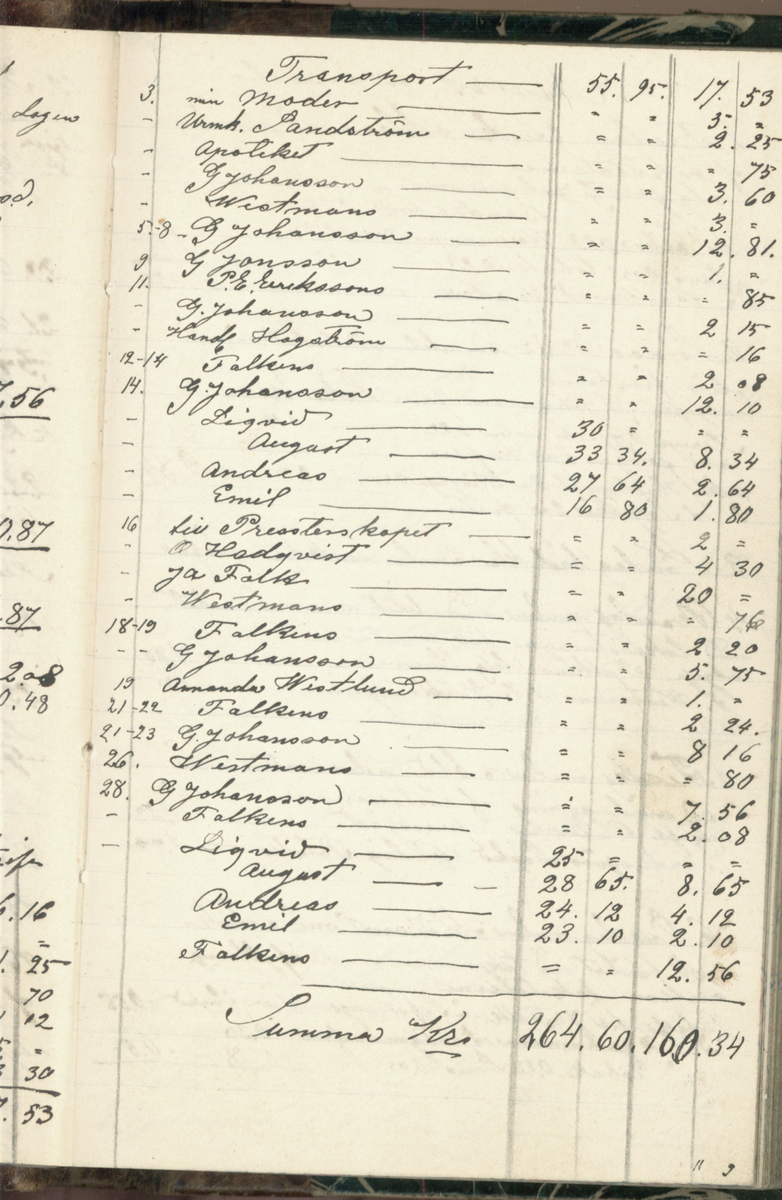 Transport — 55. 95. 17. 53
3. min Moder — " " 5. "
- Urmk. Sandström — " " 2. 25
- Apoteket — " " " 75
- G Johansson — " " 3. 60
- Westmans — " " 3. "
5-8 - G Johansson — " " 12. 81.
9 G Jonsson — " " 1. "
11. P.E. Erikssons — " " " 85
- G. Johansson — " " 2 15
- Handl Hagström — " " = 16
12-14 Falkens — " " 2 08
14. G. Johansson — " " 12. 10
- Liqvid — 30 " " "
- August — 33 34. 8. 34
- Andreas — 27 64 2. 64
- Emil — 16 80 1. 80
16 till Presterskapet — " " 2 =
- O Hedqvist — = " 4 30
- J A Falk — " " 20 =
- Westmans — " " " 76
18-19 Falkens — " " 2 20
- - G Johansson — " " 5. 75
19 Amanda Westlund — " " 1. "
21-22 Falkens — " " 2 24.
21-23 G. Johansson — " " 8 16
26. Westmans — " " = 80
28. G Johansson — " " 7. 56
- Falkens — " " 2. 08
- Liqvid — 25 = " =
August — 28 65. 8. 65
Andreas — 24. 12 4. 12
Emil — 23. 10 2. 10
Falkens — = " 12. 56
Summa Kr 264. 60. 160. 34
lagen
.56
0.87
.87
2.08
0.48
6. 16
=
25
70
12
"
30
. 53